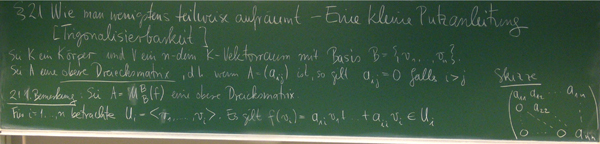 §21 Wie man wenigstens teilweise aufräumt – Eine kleine Putzanleitung
[Trigonalisierbarkeit]
Sei K ein Körper und V ein n-dim K-Vektorraum mit Basis B = {v₁, ..., vₙ}.
Sei A eine obere Dreiecksmatrix, d.h. wenn A = (aᵢⱼ) ist, so gilt aᵢⱼ = 0 falls i > j
Skizze
21.1 Bemerkung: Sei A = M_B^B(f) eine obere Dreiecksmatrix
Für i = 1, ..., n betrachte Uᵢ = <v₁, ..., vᵢ>. Es gilt f(vᵢ) = a₁ᵢ v₁ + ... + aᵢᵢ vᵢ ∈ Uᵢ
a₁₁ a₁₂ ... a₁ₙ
0 a₂₂
0 ... 0 aₙₙ